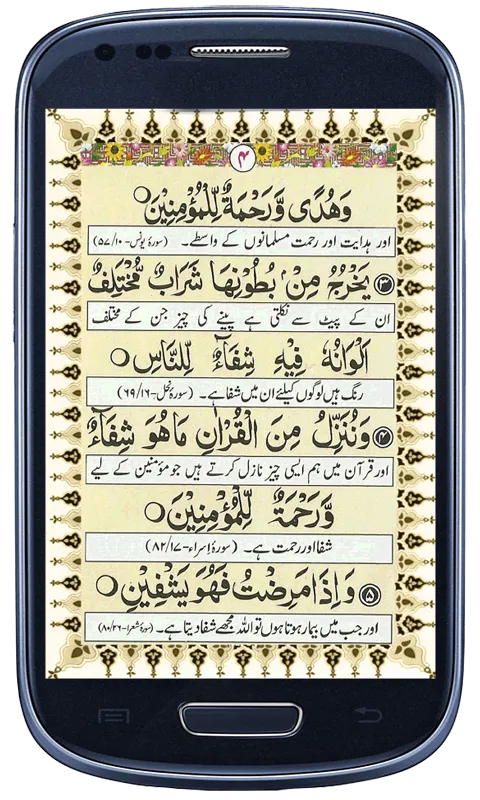 ۴
وَهُدًى وَّرَحْمَةٌ لِّلْمُؤْمِنِيْنَ
اور ہدایت اور رحمت مسلمانوں کے واسطے۔ (سورۂ یونس-۵۷/۱۰)
۳ يَخْرُجُ مِنْۢ بُطُوْنِهَا شَرَابٌ مُّخْتَلِفٌ
ان کے پیٹ سے نکلتی ہے پینے کی چیز جن کے مختلف
اَلْوَانُهٗ فِيْهِ شِفَآءٌ لِّلنَّاسِ
رنگ ہیں لوگوں کیلئے ان میں شفا ہے۔ (سورۂ نحل-۶۹/۱۶)
۴ وَنُنَزِّلُ مِنَ الْقُرْاٰنِ مَا هُوَ شِفَآءٌ
اور قرآن میں ہم ایسی چیز نازل کرتے ہیں جو مؤمنین کے لیے
وَّرَحْمَةٌ لِّلْمُؤْمِنِيْنَ
شفا اور رحمت ہے۔ (سورۂ اسراء-۸۲/۱۷)
۵ وَاِذَا مَرِضْتُ فَهُوَ يَشْفِيْنِ
اور جب میں بیمار ہوتا ہوں تو اللہ مجھے شفا دیتا ہے۔ (سورۂ شعرا-۸۰/۲۶)